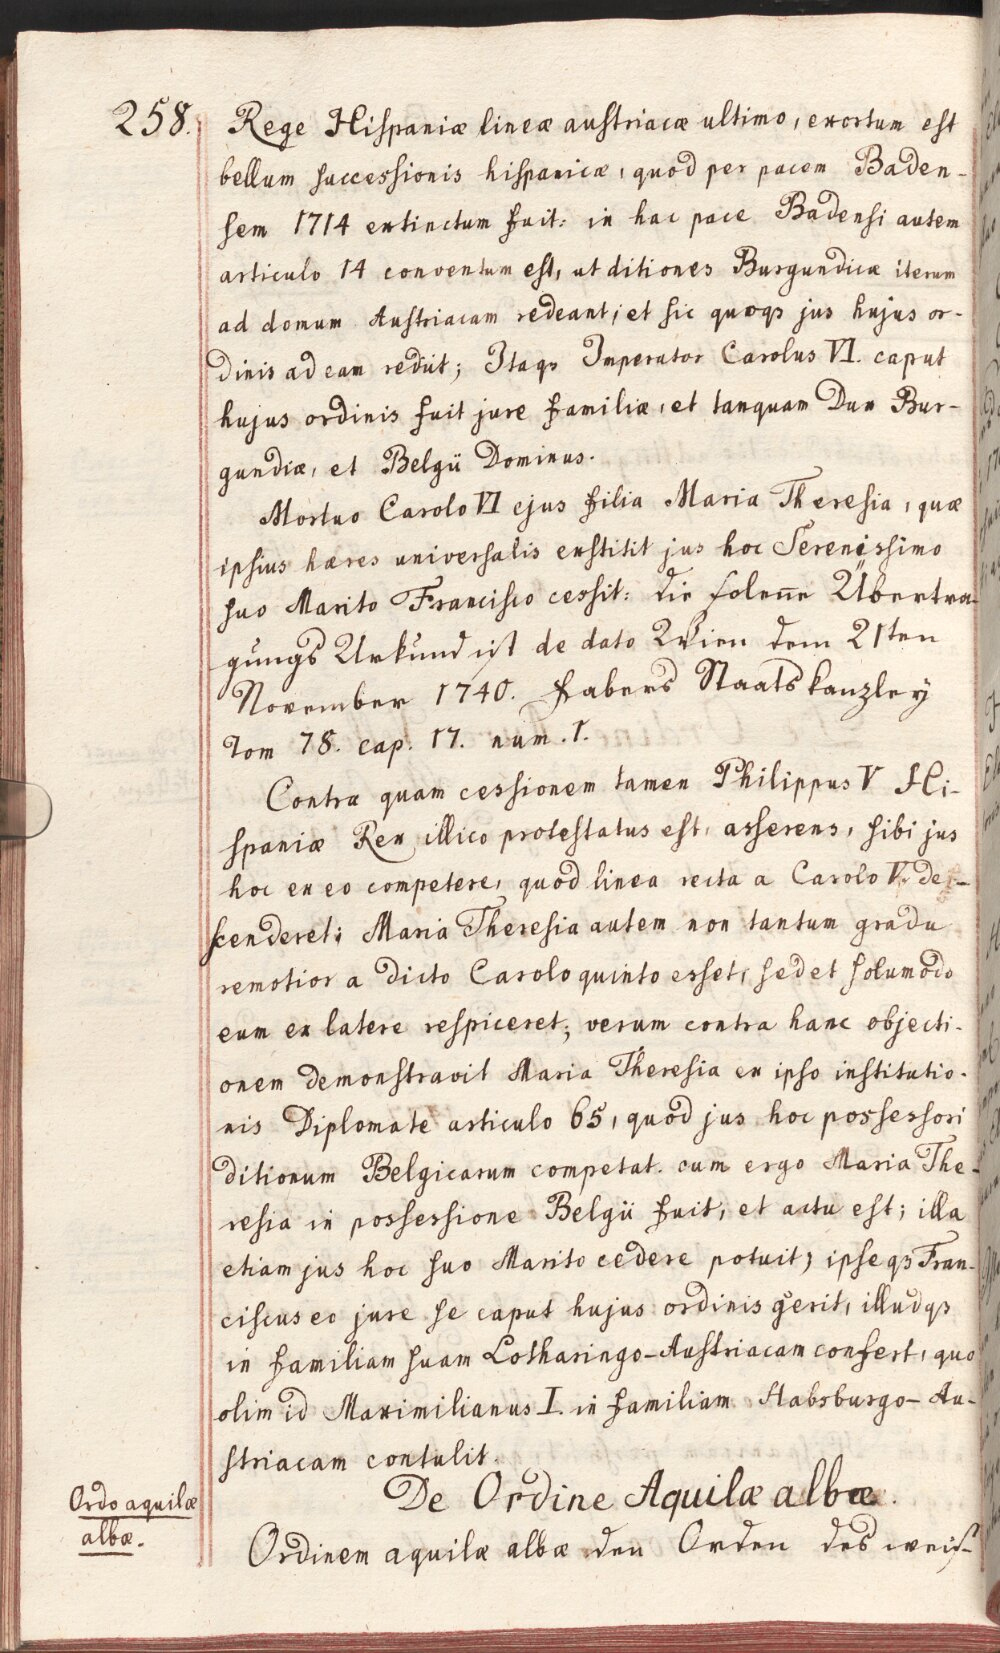 258.
Rege Hispaniæ lineæ austriacæ ultimo, exortum est
bellum successionis hispanicæ, quod per pacem Baden-
sem 1714 extinctum fuit: in hac pace Badensi autem
articulo 14 conventum est, ut ditiones Burgundicæ iterum
ad domum Austriacam redeant, et sic quoqs jus hujus or-
dinis ad eam rediit; Itaqs Imperator Carolus VI. caput
hujus ordinis fuit jure familiæ, et tanquam Dux Bur-
gundiæ, et Belgii Dominus.
Mortuo Carolo VI ejus filia Maria Theresia, quæ
ipsius hæres universalis exstitit jus hoc Serenissimo
suo Marito Francisco cessit: die solenne Übertra-
gungs Urkund ist de dato Wien dem 21ten
November 1740. Fabers Staatskanzley
Tom 78. cap. 17. num. 1.
Contra quam cessionem tamen Philippus V Hi-
spaniæ Rex illico protestatus est, asserens, sibi jus
hoc ex eo competere, quod linea recta a Carolo V. de-
scenderet; Maria Theresia autem non tantum gradu
remotior a dicto Carolo quinto esset, sed et solumodo
eum ex latere respiceret; verum contra hanc objecti-
onem demonstravit Maria Theresia ex ipso institutio-
nis Diplomate articulo 65, quod jus hoc possessori
ditionum Belgicarum competat. cum ergo Maria The-
resia in possessione Belgii fuit, et actu est; illa
etiam jus hoc suo Marito cedere potuit; ipseqs Fran-
ciscus eo jure se caput hujus ordinis gerit, illudqs
in familiam suam Lotharingo-Austriacam confert, quo
olim id Maximilianus I. in familiam Habsburgo-Au-
striacam contulit.
De Ordine Aquilæ albæ.
Ordo aquilæ
albæ.
Ordinem aquilæ albæ den Orden des weis-